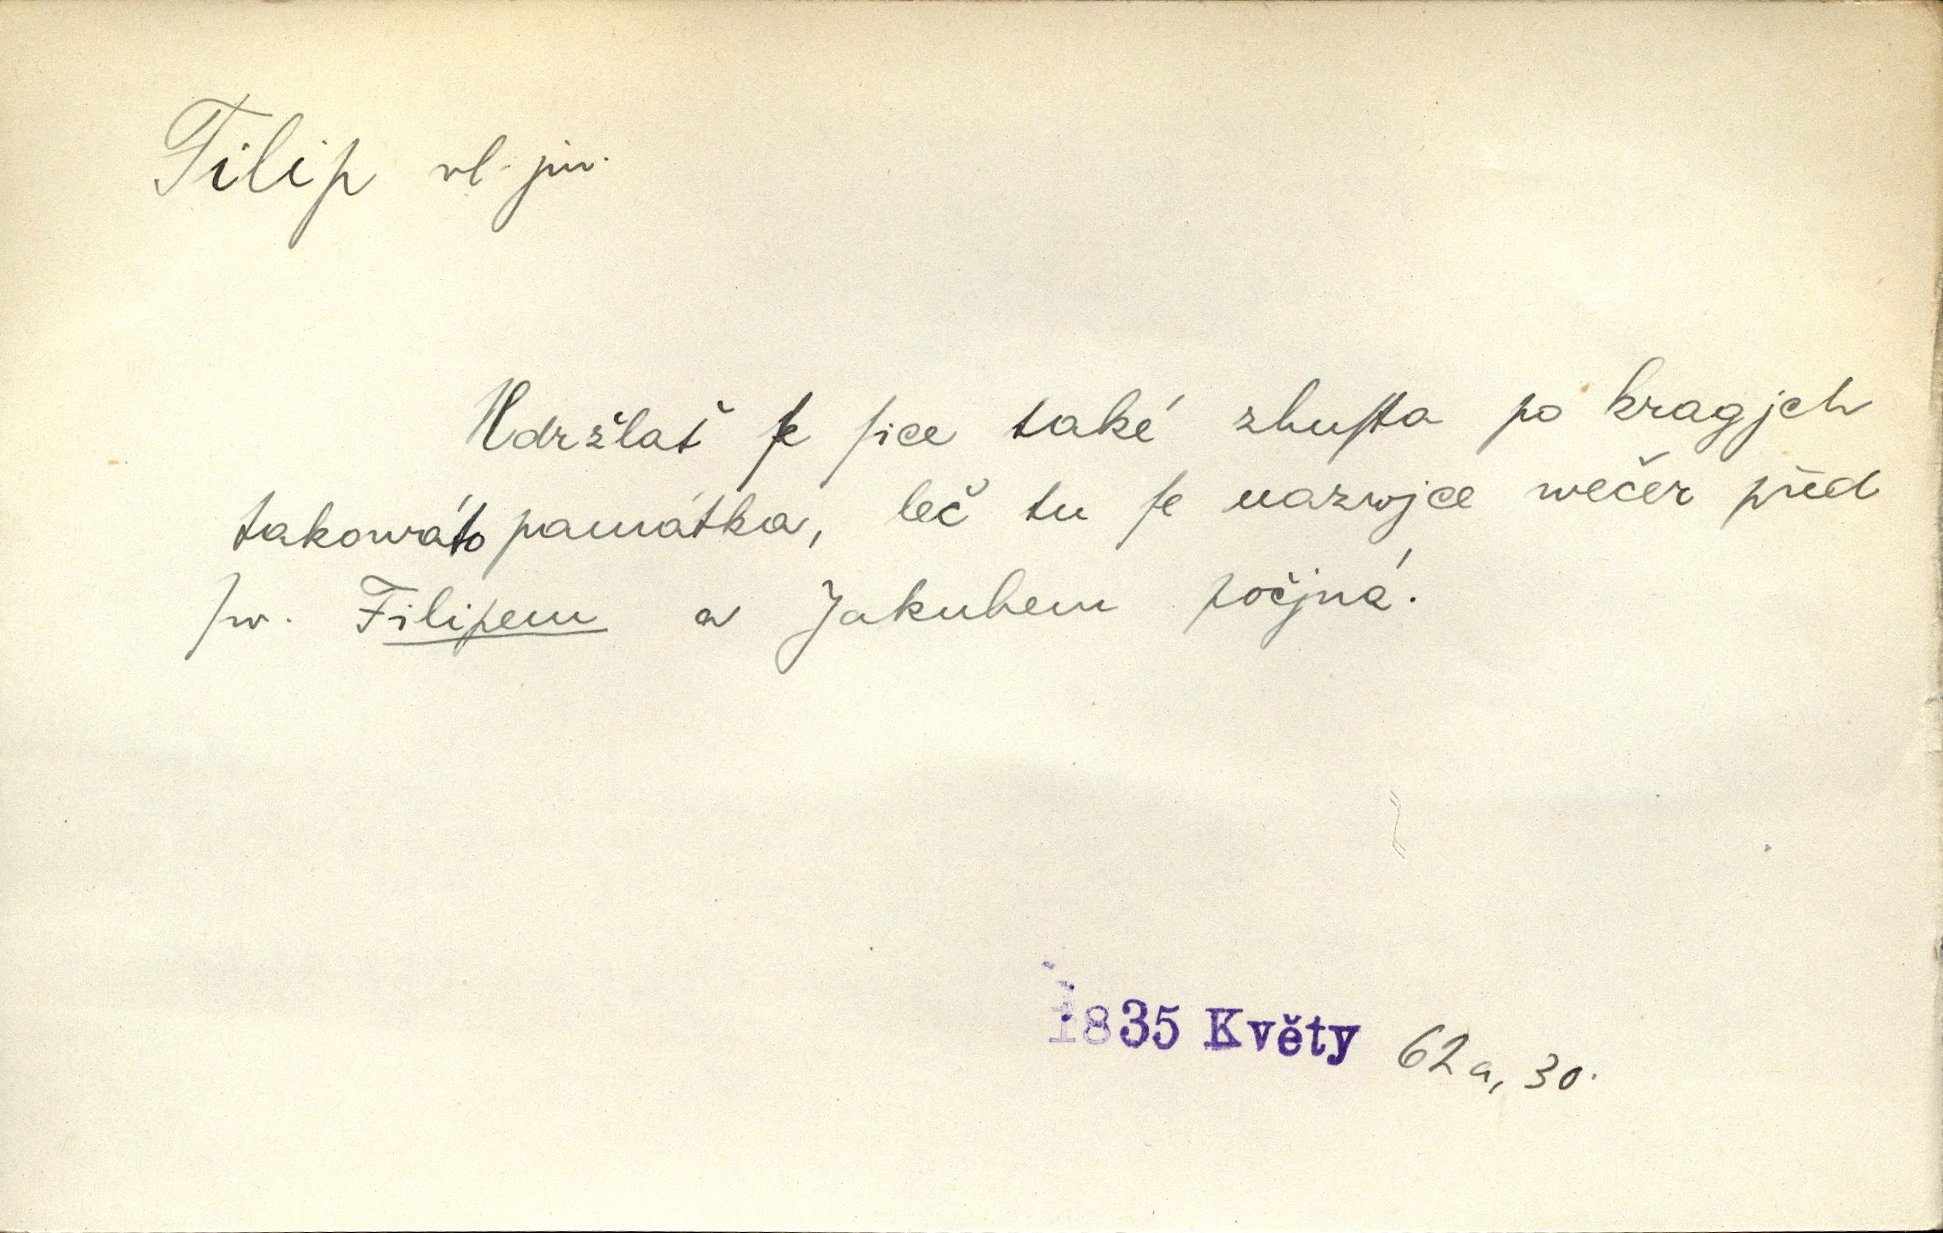 Filip vl. jm.
Udržlať ſe ſice také zhuſta po kragjch
takowáto památka, leč tu ſe nazwjce wečer před
ſw. Filipem a Jakubem počjná.
1835 Květy 62a, 30.